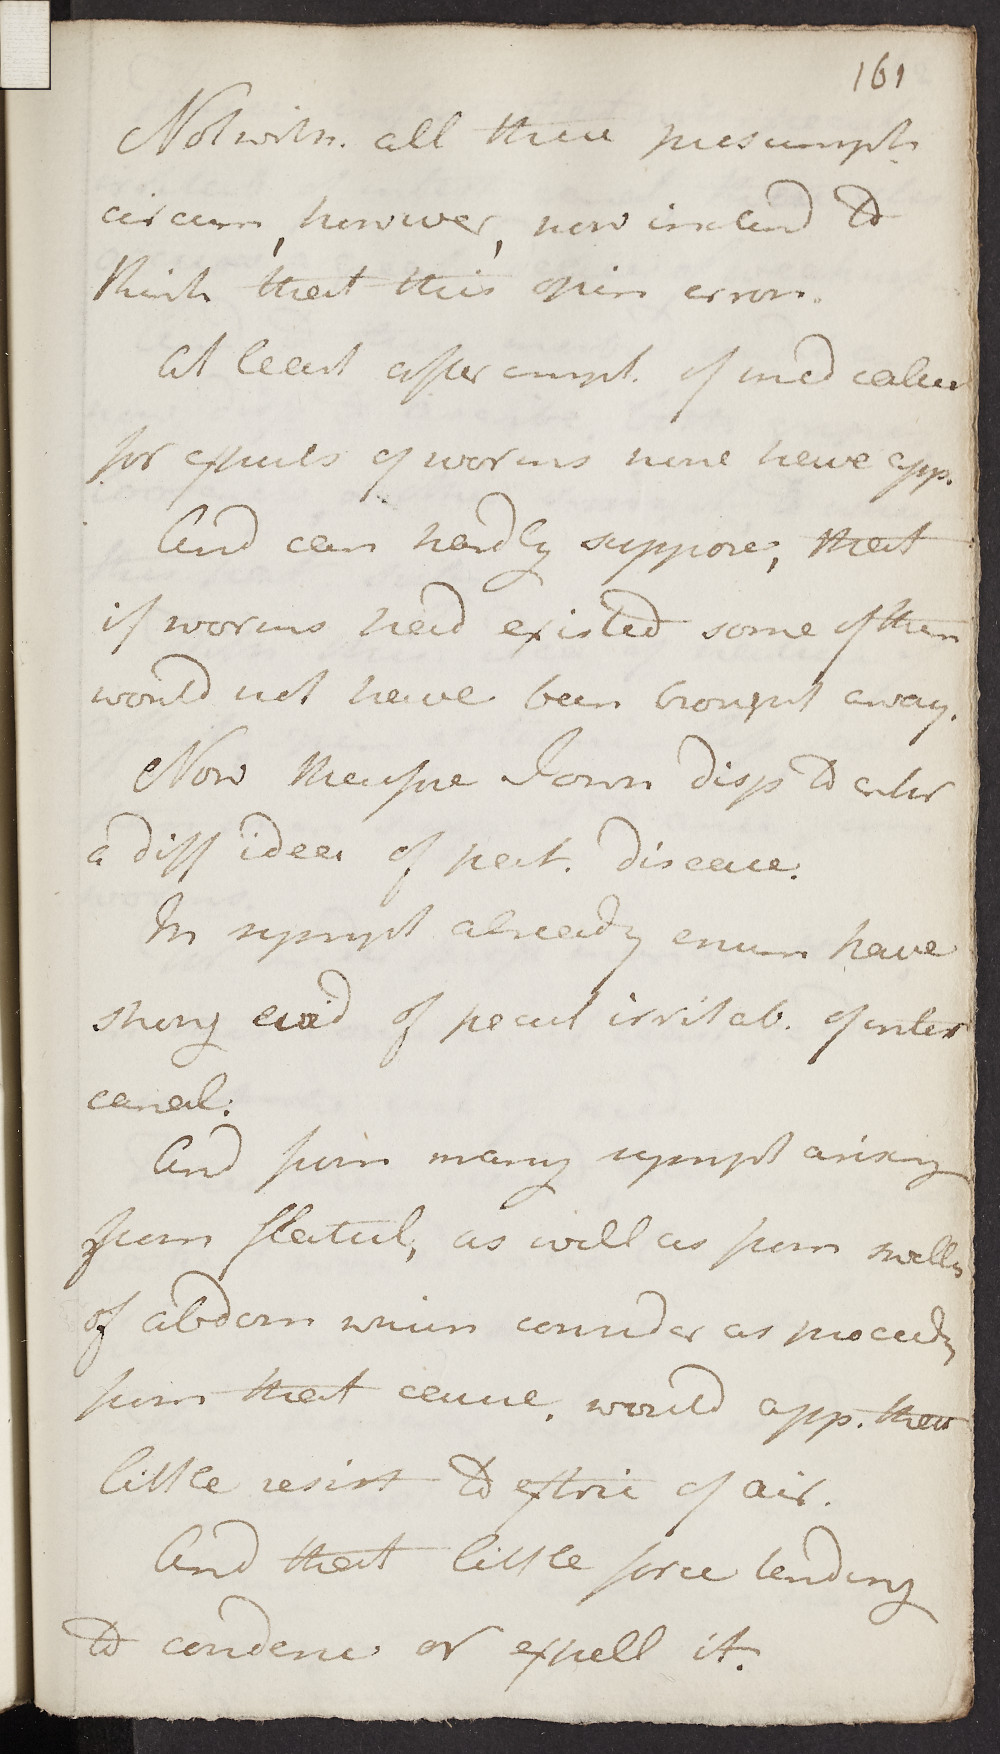 161
Notwith. all these presumpt.
circum, however, now inclined to
think that this opin erron.
At least after empt. of med calcul
for expuls of worms none have app.
And can hardly suppose, that
if worms had existed some of them
would not have been brought away.
Now therefore I own disp to enter
a diff idea of pat. disease.
In sympt already enum have
strong evid of pecul irritab. of inter
canal.
And from many sympt arising
from flatul, as well as from swelling
of abdom which consider as proceeding
from that cause, would app. that
little resist to extric of air.
And that little force tending
to condense or expell it.